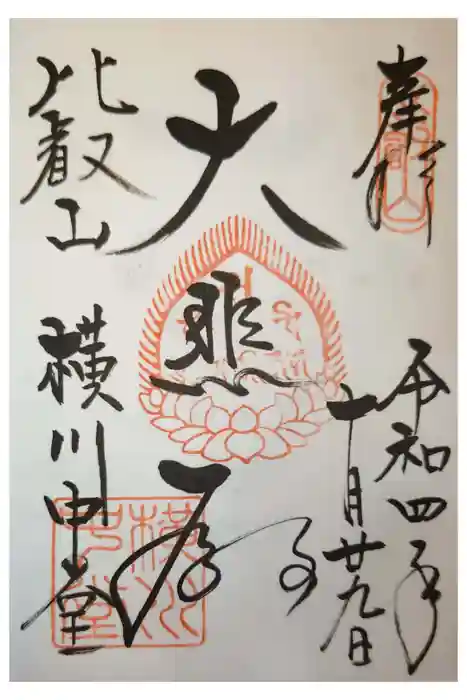 奉拝
令和四年
十月廿九日
大悲殿
比叡山
横川中堂
横川
中堂